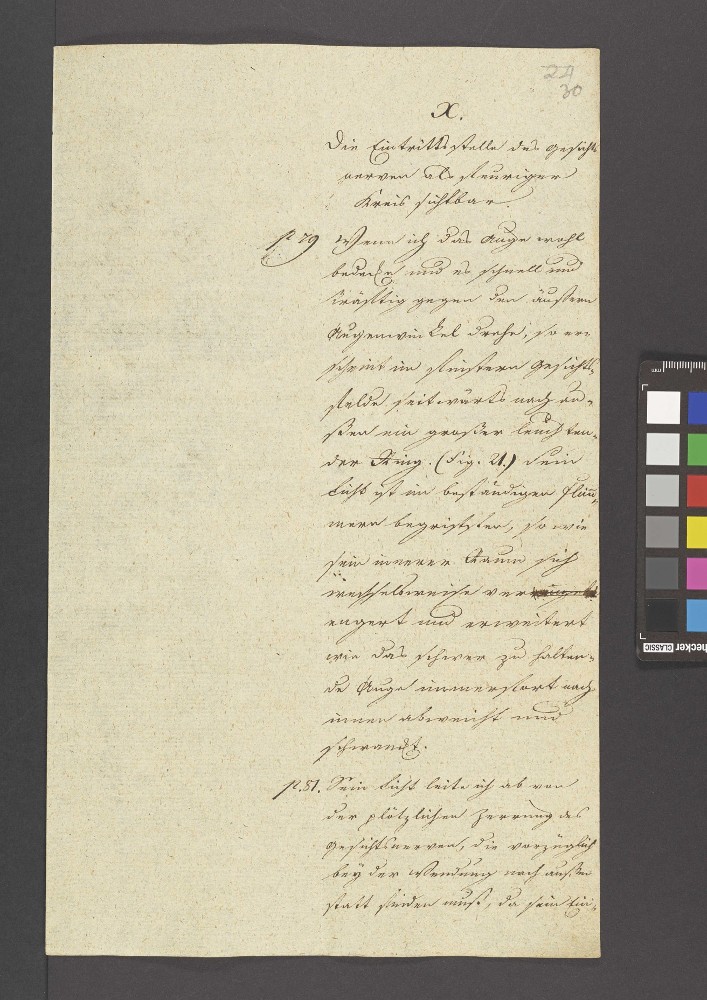 24
30
X.
Die Eintrittsstelle des Gesichts
nerven als feuriger
Kreis sichtbar.
p 79 Wenn ich das Auge wohl
bedecke und es schnell und
kräftig gegen den äußern
Augenwinkel drehe, so er=
scheint im finstern Gesichts=
felde seitwärts nach au=
ßen ein großer leuchten=
der Ring. (Fig. 21.) Sein
Licht ist im beständigen Flim=
mern begriffen, so wie
sein innerer Raum sich
wechselsweise ver
engert und erweitert
wie das schwer zu halten=
de Auge immerfort nach
innen abweicht und
schwankt.
p. 81. Sein Licht leite ich ab von
der plötzlichen Zerrung des
Gesichtsnerven, die vorzüglich
bey der Wendung nach außen
statt finden muß, da sein Ein=